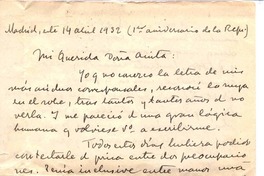 Madrid, este 14 abril 1932 (1er aniversario de la Repª)
Mi Querida Doña Anita:
Yo q conozco la letra de mis
más asiduos corresponsales, reconocí la suya
en el sobre, tras tantos y tantos años d no
verla. Y me pareció d una gran lógica
humana q volviese Vª a escribirme.
Todos estos días hubiera podido
contestarle d prisa entre dos preocupacio
nes. Tenía inclusive entre manos una